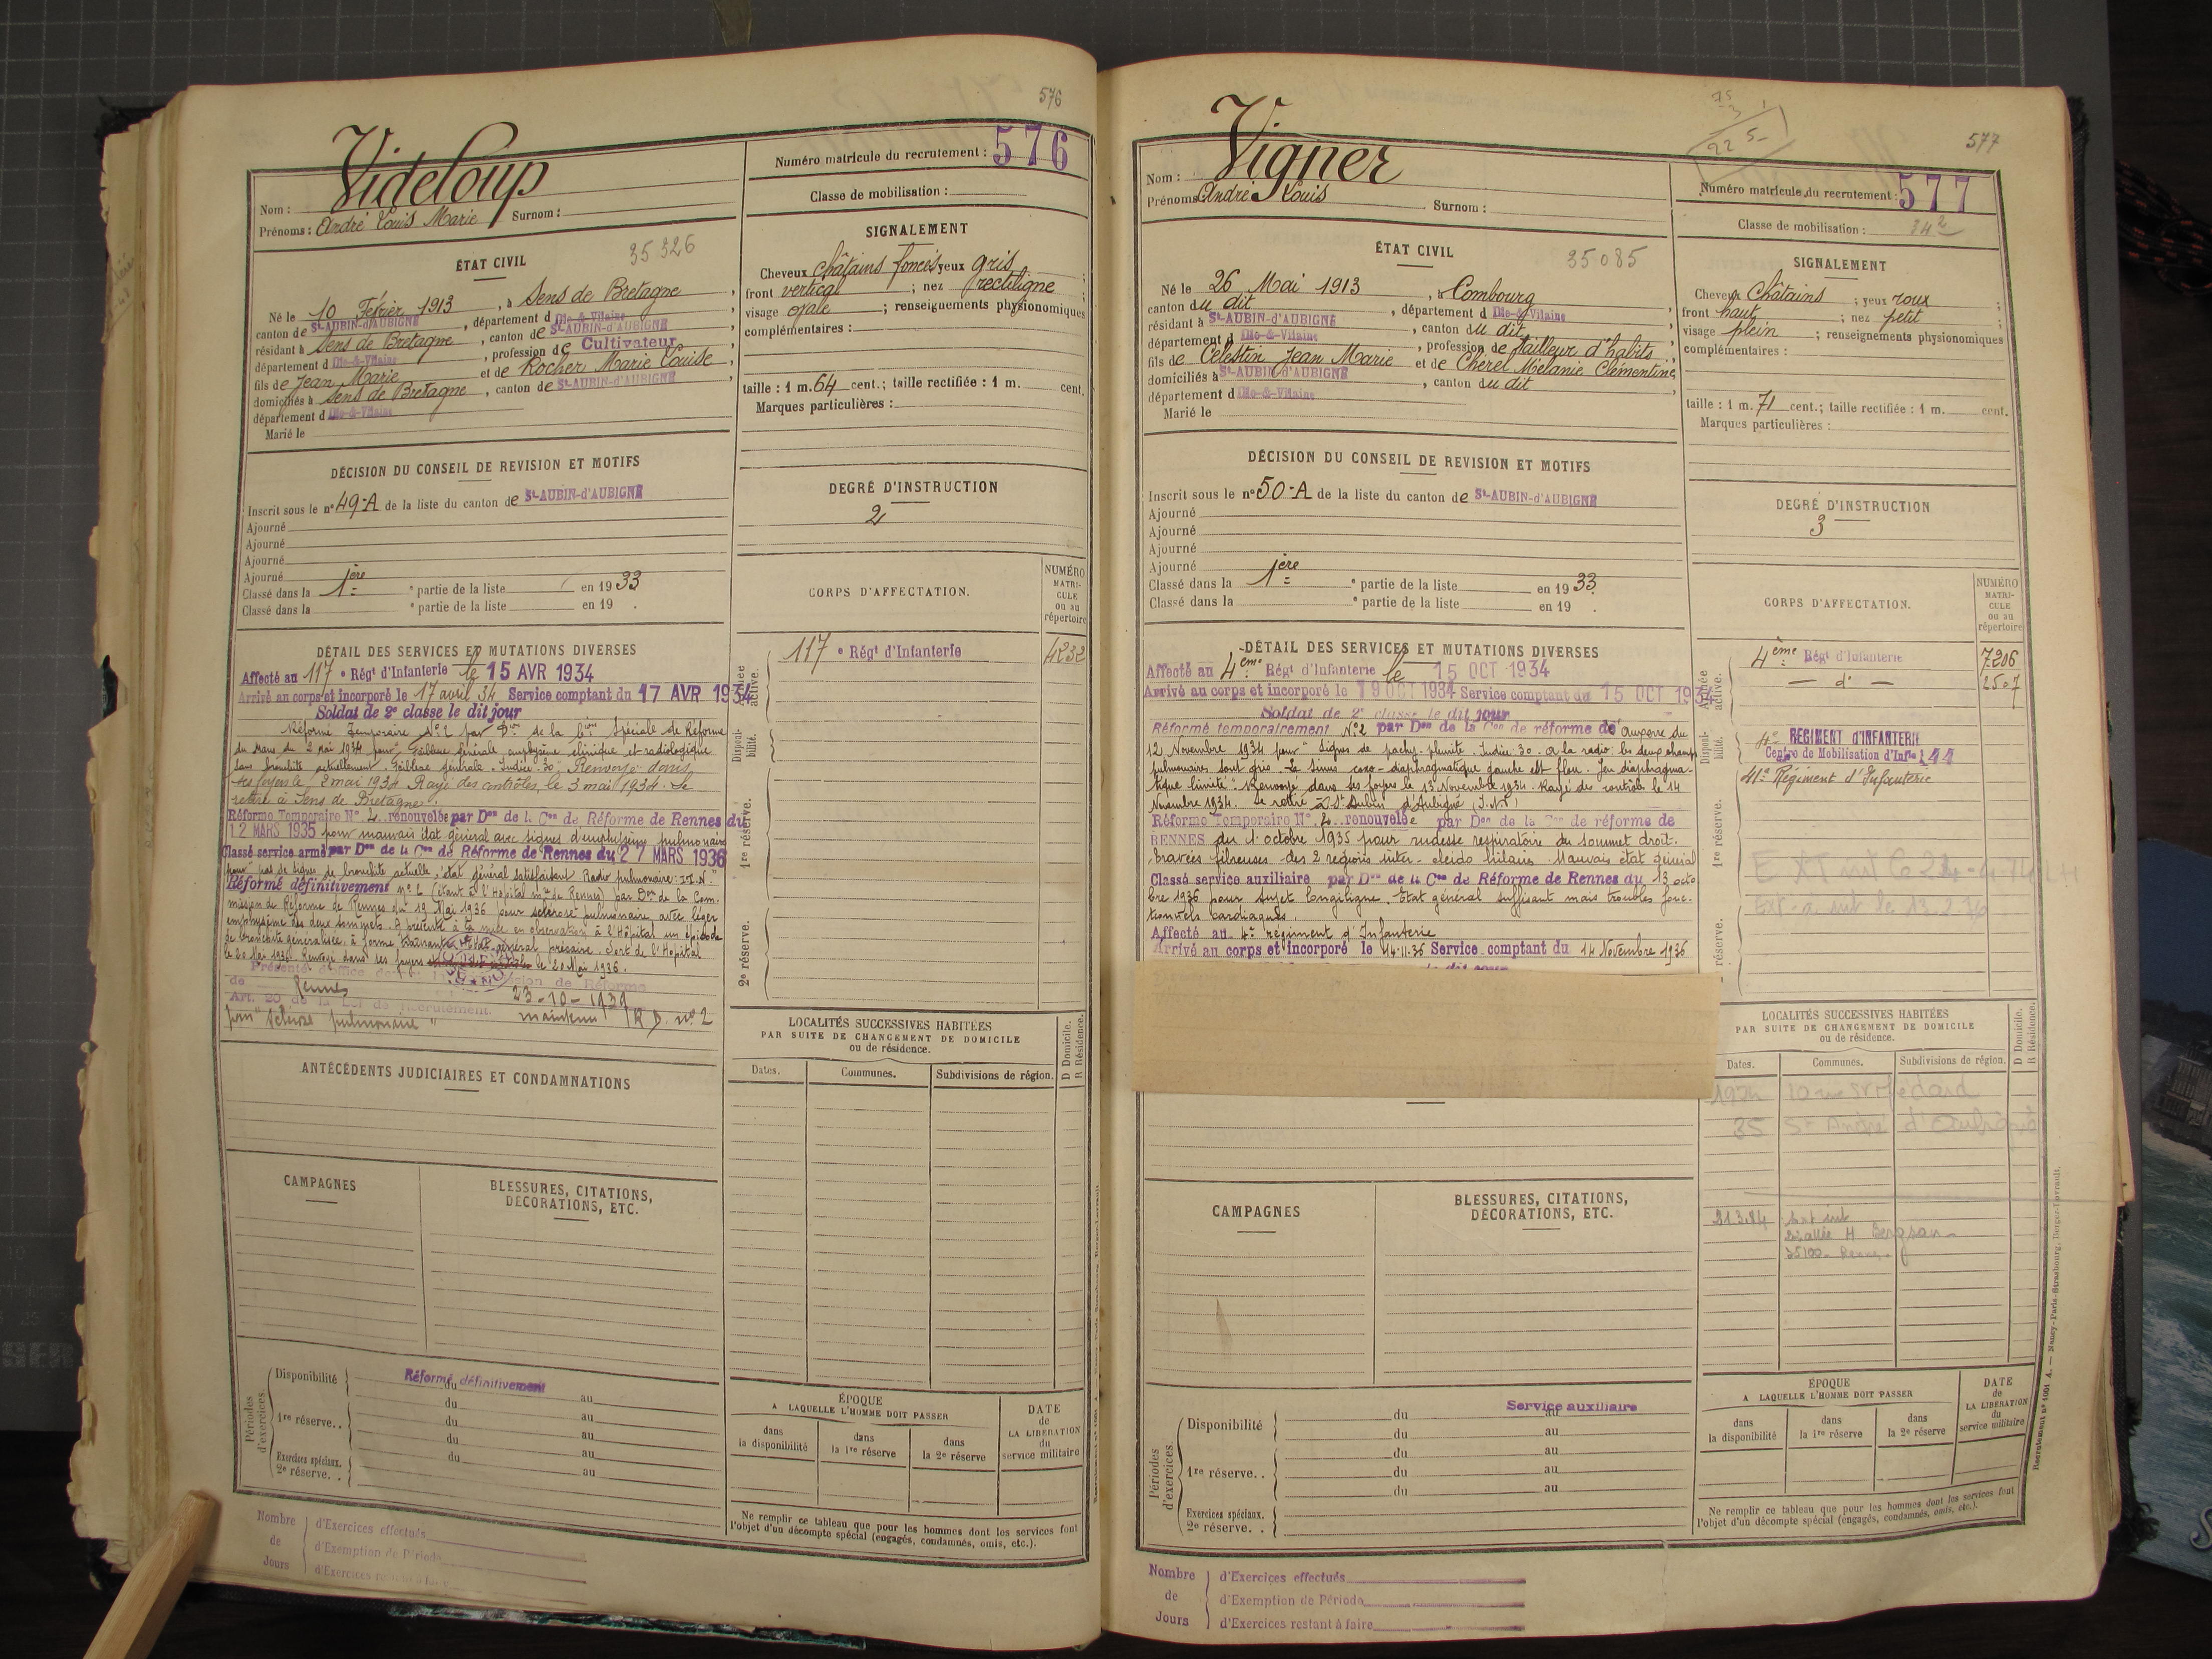 576
Videloup
Nom :
Prénoms : André Louis Marie Surnom :
Numéro matricule du recrutement : 576
Classe de mobilisation :
ÉTAT CIVIL
35326
Né le 10 Février 1913, à Sens de Bretagne,
canton de St-AUBIN-d'AUBIGNÉ, département d Ille-&-Vilaine
résidant à Sens de Bretagne, canton de St-AUBIN-d'AUBIGNÉ
département d Ille-&-Vilaine, profession de Cultivateur
fils de Jean Marie et de Rocher Marie Louise,
domiciliés à Sens de Bretagne, canton de St-AUBIN-d'AUBIGNÉ,
département d Ille-&-Vilaine
Marié le
SIGNALEMENT
Cheveux châtains foncés yeux gris ;
front vertical ; nez rectiligne ;
visage ovale ; renseignements physionomiques
complémentaires :
taille : 1 m. 64 cent.; taille rectifiée : 1 m. cent.
Marques particulières :
DÉCISION DU CONSEIL DE REVISION ET MOTIFS
Inscrit sous le n° 49-A de la liste du canton de St-AUBIN-d'AUBIGNÉ
Ajourné
Ajourné
Ajourné
Ajourné
Classé dans la 1ère e partie de la liste en 1933
Classé dans la e partie de la liste en 19 .
DEGRÉ D'INSTRUCTION
2
CORPS D'AFFECTATION.
NUMÉRO MATRI-CULE ou au répertoire
117 e Régt d'Infanterie 4232
Armée active.
Disponi-bilité.
1re réserve.
2e réserve.
DÉTAIL DES SERVICES ET MUTATIONS DIVERSES
Affecté au 117 e Régt d'Infanterie le 15 AVR 1934
Arrivé au corps et incorporé le 17 avril 34 Service comptant du 17 AVR 1934
Soldat de 2e classe le dit jour
Réformé Temporaire N° 2 par Don de la Con Spéciale de Réforme
du Mans du 2 mai 1934 pour "Faiblesse générale emphysème clinique et radiologique
sans bronchite actuellement. Faiblesse générale. Indice 30" Renvoyé dans
ses foyers le 3 mai 1934 Rayé des contrôles, le 3 mai 1934. Se
retire à Sens de Bretagne.
Réforme Temporaire N° 2 renouvelée par Don de la Con de Réforme de Rennes du
12 MARS 1935 pour mauvais état général avec signes d'emphysème pulmonaire
Classé service armé par Don de la Con de Réforme de Rennes du 27 MARS 1936
pour "pas de signes de bronchite actuelle, état général satisfaisant Radio pulmonaire: I.N."
Réformé définitivement n° 2 (étant à l'Hopital mre de Rennes) par Don de la Com.
mission de Réforme de Rennes du 19 Mai 1936 pour sclérose pulmonaire avec léger
emphysème des deux sommets. A présenté à la suite en observation à l'Hôpital un épisode
de bronchite généralisée à forme trainante. Etat général précaire. Sort de l'Hopital
le 20 Mai 1936 Renvoyé dans ses foyers le 20 Mai 1936.
de Rennes 23-10-1939
Art. 20 de la Loi de Recrutement.
pour "sclérose pulmonaire" maintenu R D. n° 2
ANTÉCÉDENTS JUDICIAIRES ET CONDAMNATIONS
LOCALITÉS SUCCESSIVES HABITÉES
PAR SUITE DE CHANGEMENT DE DOMICILE
ou de résidence.
D Domicile.
R Résidence.
Dates. Communes. Subdivisions de région.
CAMPAGNES
BLESSURES, CITATIONS,
DÉCORATIONS, ETC.
Périodes d'exercices.
Disponibilité Réformé définitivement
du au
du au
1re réserve.. du au
du au
Exercices spéciaux. du au
2e réserve. . au
ÉPOQUE
A LAQUELLE L'HOMME DOIT PASSER
dans la disponibilité
dans la 1re réserve
dans la 2e réserve
DATE de LA LIBÉRATION du service militaire
Ne remplir ce tableau que pour les hommes dont les services font
l'objet d'un décompte spécial (engagés, condamnés, omis, etc.).
Nombre de Jours
d'Exercices effectués
d'Exemption de Période
d'Exercices restant à faire
577
75
3
22 5
Vigner
Nom :
Prénoms André Louis Surnom :
Numéro matricule du recrutement : 577
Classe de mobilisation : 34 2
ÉTAT CIVIL
35085
Né le 26 Mai 1913, à Combourg
canton du dit, département d Ille-&-Vilaine
résidant à St-AUBIN-d'AUBIGNÉ, canton du dit,
département d Ille-&-Vilaine, profession de tailleur d'habits,
fils de Célestin Jean Marie et de Chérel Mélanie Clémentine,
domiciliés à St-AUBIN-d'AUBIGNÉ, canton du dit,
département d Ille-&-Vilaine
Marié le
SIGNALEMENT
Cheveux Châtains ; yeux roux ;
front haut ; nez petit ;
visage plein ; renseignements physionomiques
complémentaires :
taille : 1 m. 71 cent.; taille rectifiée : 1 m. cent.
Marques particulières :
DÉCISION DU CONSEIL DE REVISION ET MOTIFS
Inscrit sous le n° 50-A de la liste du canton de St-AUBIN-d'AUBIGNÉ
Ajourné
Ajourné
Ajourné
Ajourné
Classé dans la 1ère e partie de la liste en 1933.
Classé dans la e partie de la liste en 19 .
DEGRÉ D'INSTRUCTION
3
CORPS D'AFFECTATION.
NUMÉRO MATRI-CULE ou au répertoire
4ème Régt d'Infanterie 7206
— d° — 2507
4e RÉGIMENT D'INFANTERIE
Centre de Mobilisation d'Infie 144
41e Régiment d'Infanterie
Armée active.
Disponi-bilité.
1re réserve.
réserve.
Ext-a int le 13.2.76
DÉTAIL DES SERVICES ET MUTATIONS DIVERSES
Affecté au 4ème Régt d'Infanterie le 15 OCT 1934
Arrivé au corps et incorporé le 19 OCT 1934 Service comptant du 15 OCT 1934
Soldat de 2e classe le dit jour
Réformé temporairement N°2 par Don de la Con de réforme de Auxerre du
12 Novembre 1934 pour "signes de pachy-pleurite. Indice 30. A la radio les deux champs
pulmonaires sont gris. Le sinus costo-diaphragmatique gauche est flou. Jeu diaphragma-
tique limité" Renvoyé dans ses foyers le 13 Novembre 1934. Rayé des contrôles le 14
Novembre 1934. Se retire à St Aubin d'Aubigné (I.&V)
Réforme Temporaire N° 2 renouvelée par Don de la Con de réforme de
RENNES du 1 octobre 1935 pour rudesse respiratoire du sommet droit.
travées fibreuses des 2 régions inter-cleido hilaires. Mauvais état général
Classé service auxiliaire par Don de la Con de Réforme de Rennes du 13 octo
bre 1936 pour sujet longiligne. Etat général suffisant mais troubles fonc.
tionnels cardiaques.
Affecté au 4e régiment d'Infanterie
Arrivé au corps et incorporé le 14-11-36 Service comptant du 14 Novembre 1936
LOCALITÉS SUCCESSIVES HABITÉES
PAR SUITE DE CHANGEMENT DE DOMICILE
ou de résidence.
D Domicile.
R Résidence.
Dates. Communes. Subdivisions de région.
1974 10 rue St Médard
35 St d'Aubigné
21.3.84 Ext int
allée H Bergson
35100 - Rennes.
CAMPAGNES
BLESSURES, CITATIONS,
DÉCORATIONS, ETC.
Périodes d'exercices.
Service auxiliaire
Disponibilité du au
du au
du au
1re réserve. . du au
du au
Exercices spéciaux.
2e réserve. .
ÉPOQUE
A LAQUELLE L'HOMME DOIT PASSER
dans la disponibilité
dans la 1re réserve
dans la 2e réserve
DATE de LA LIBÉRATION du service militaire
Ne remplir ce tableau que pour les hommes dont les services font
l'objet d'un décompte spécial (engagés, condamnés, omis, etc.).
Recrutement n° 1001 A. — Nancy-Paris-Strasbourg, Berger-Levrault.
Nombre de Jours
d'Exercices effectués
d'Exemption de Période
d'Exercices restant à faire